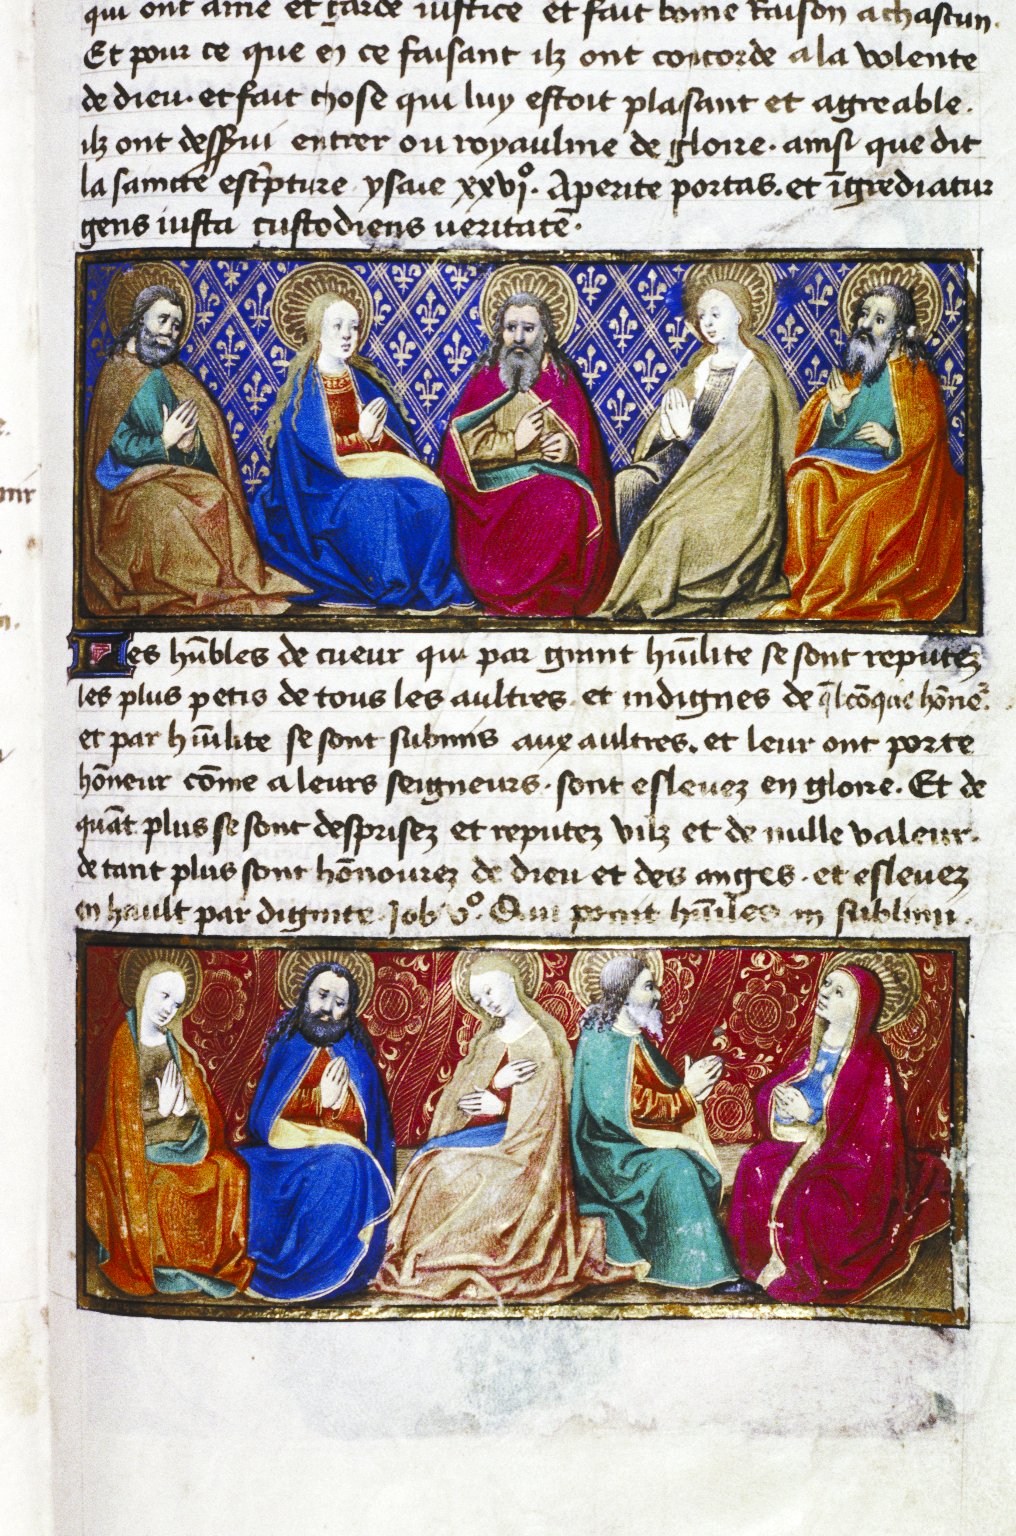 qui ont ame et garde iustice et fait bonne Raison a chascun.
Et pour ce que en ce faisant ilz ont concorde a la volente
de dieu. et fait chose qui luy estoit plaisant et agreable.
ilz ont desservi entrer ou royaulme de gloire. ainsi que dit
la saincte escpture ysaie xxvjo. Aperite portas. et īgrediatur
gens iusta custodiens veritatē.
Les hūbles de cueur qui par grant humilite se sont reputez
les plus petis de tous les aultres et indignes de
et par humilite se sont submis aux aultres. et leur ont porte
hōneur cōme a leurs seigneurs. sont eslevez en gloire. Et de
quāt plus se sont desprisez et reputez vilz et de nulle valeur.
de tant plus sont hōnourez de dieu et des anges. et eslevez
en hault par dignite. Job vo. Qui ponit hūiles in sublimi.